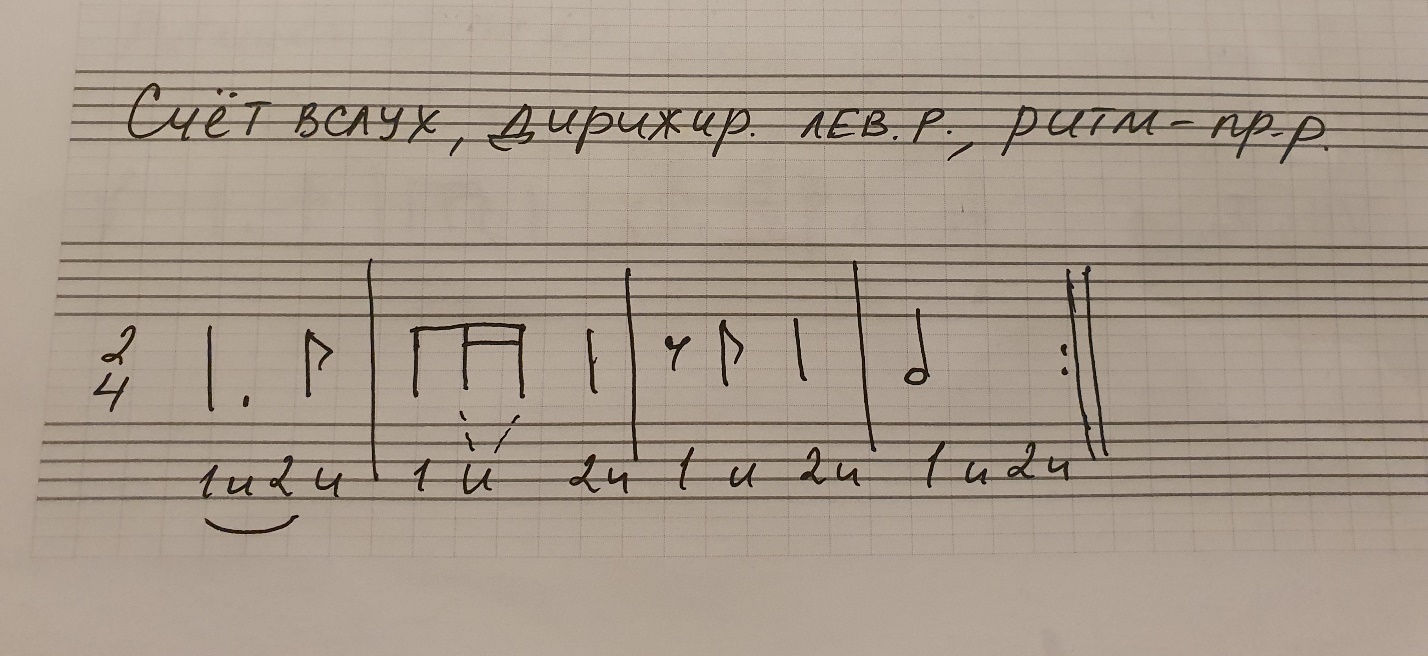 Счёт вслух, дирижир. лев. р., ритм - пр. р.
2
4
1 и 2 и 1 и 2 и 1 и 2 и 1 и 2 и